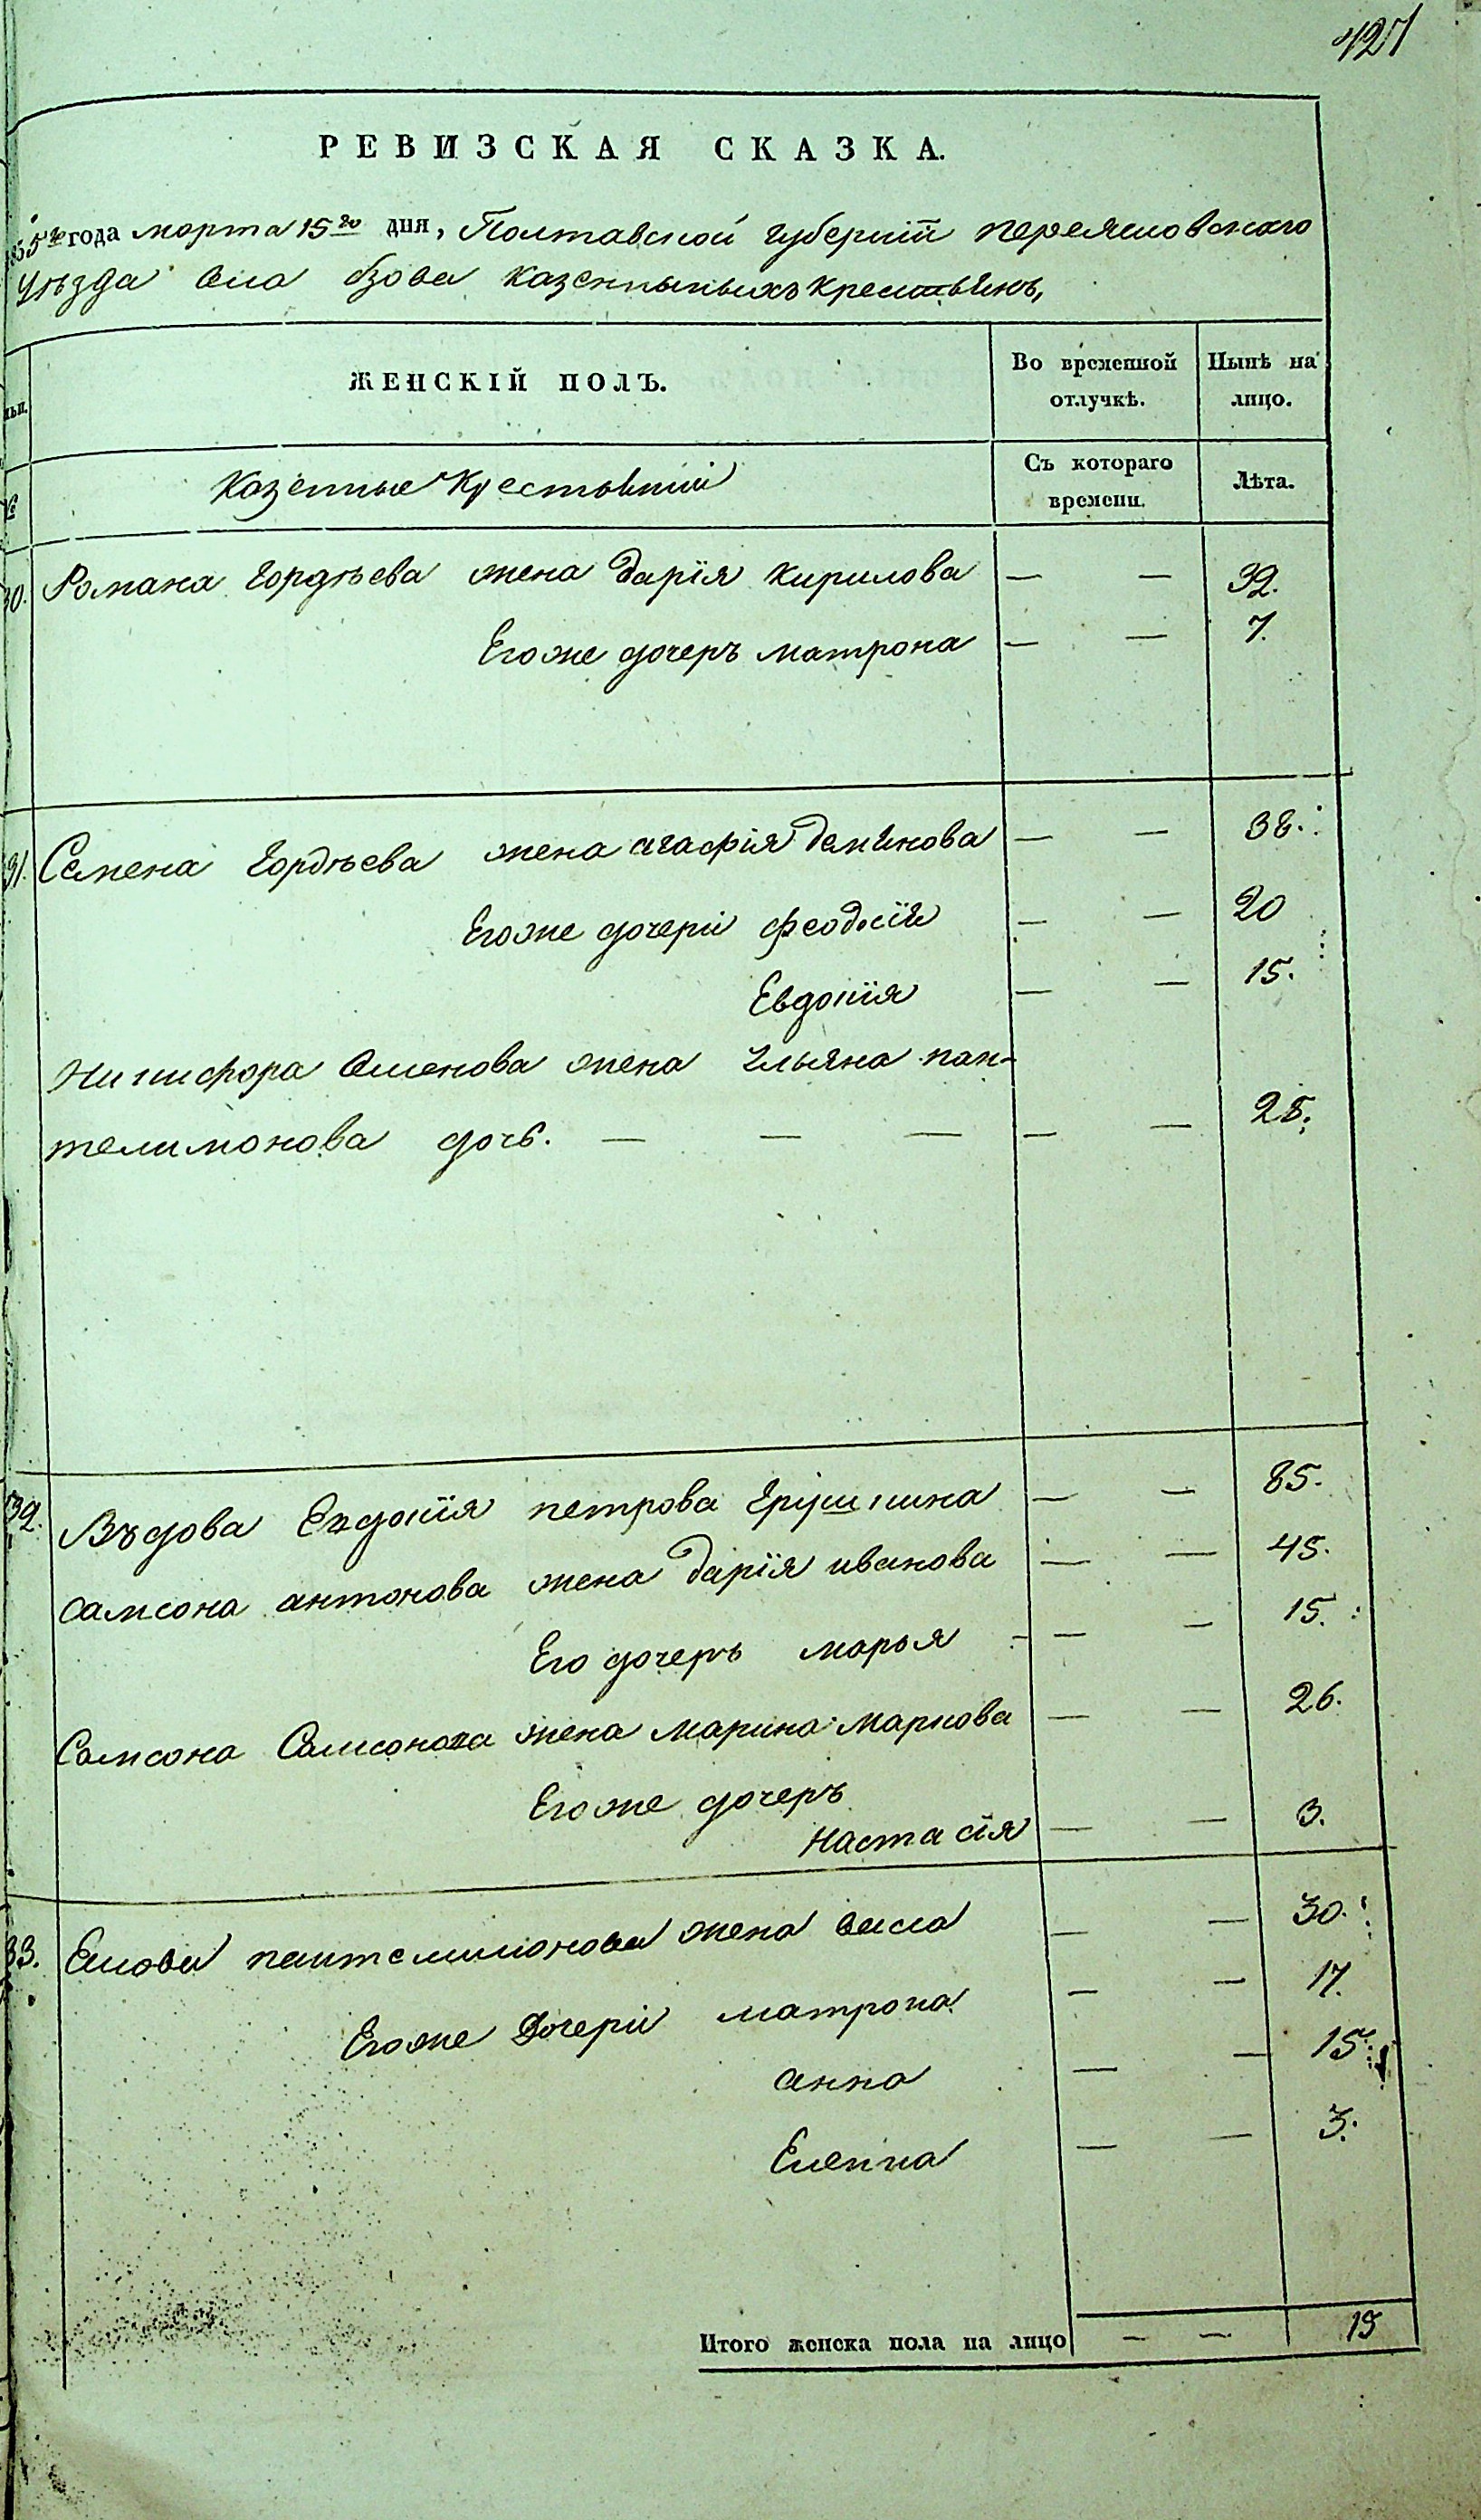 427
РЕВИЗСКАЯ СКАЗКА.
года марта 15го дня, Полтавской губерніи Переяславскаго
уѣзда села казенныхъ крестьянъ,
ЖЕНСКІЙ ПОЛЪ.
Во временной
отлучкѣ.
Нынѣ на
лицо.
Казенные Крестьяни
Съ котораго
времени.
Лѣта.
30. Романа Гордѣева жена Дарія Кирилова — — 32.
Егоже дочеръ матрона — — 7.
31. Семена Гордѣева жена агафія — — 38.
Егоже дочери феодосія — — 20
Евдокія — — 15.
Никифора Семенова жена Ульяна пан-
телимонова дочь. — — — — — 28.
32. Вѣдова Евдокія петрова — — 85.
самсона антонова жена Дарія иванова — — 45.
Его дочеръ марья — — 15.
Самсона Самсонова жена Марина Маркова — — 26.
Егоже дочеръ
Настасія — — 3.
33. пантелимонова жена — — 30.
Егоже Дочери матрона — — 17.
анна — — 15.
Еленна — — 3.
Итого женска пола на лицо — — 15